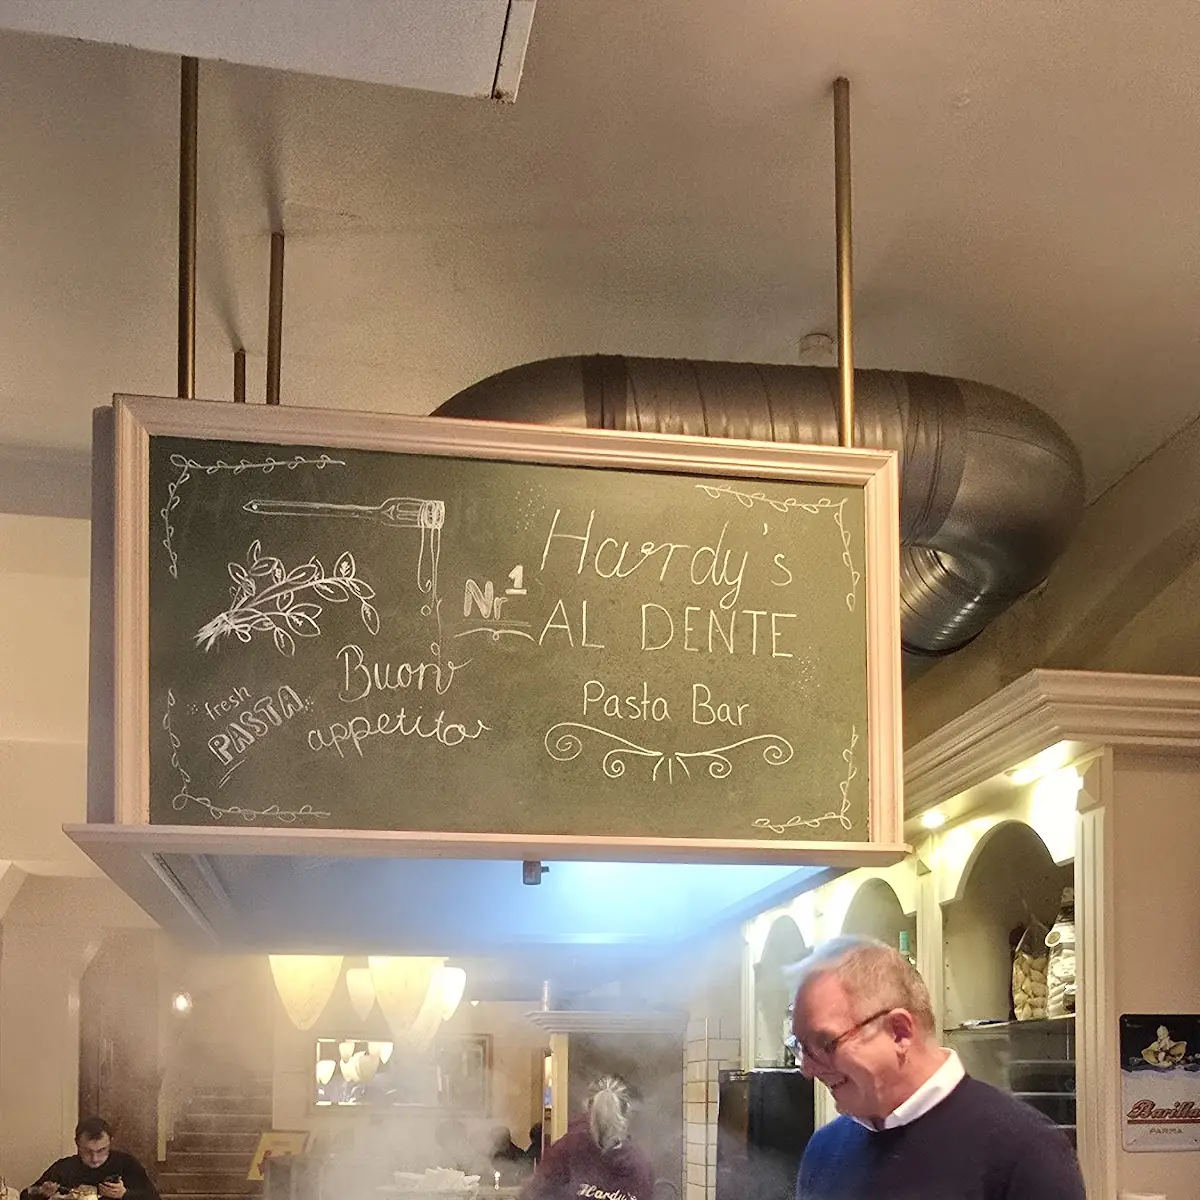 Hardy's
Nr 1
AL DENTE
Pasta Bar
Buon
appetito
fresh
PASTA
Barilla
PARMA
Hardy's